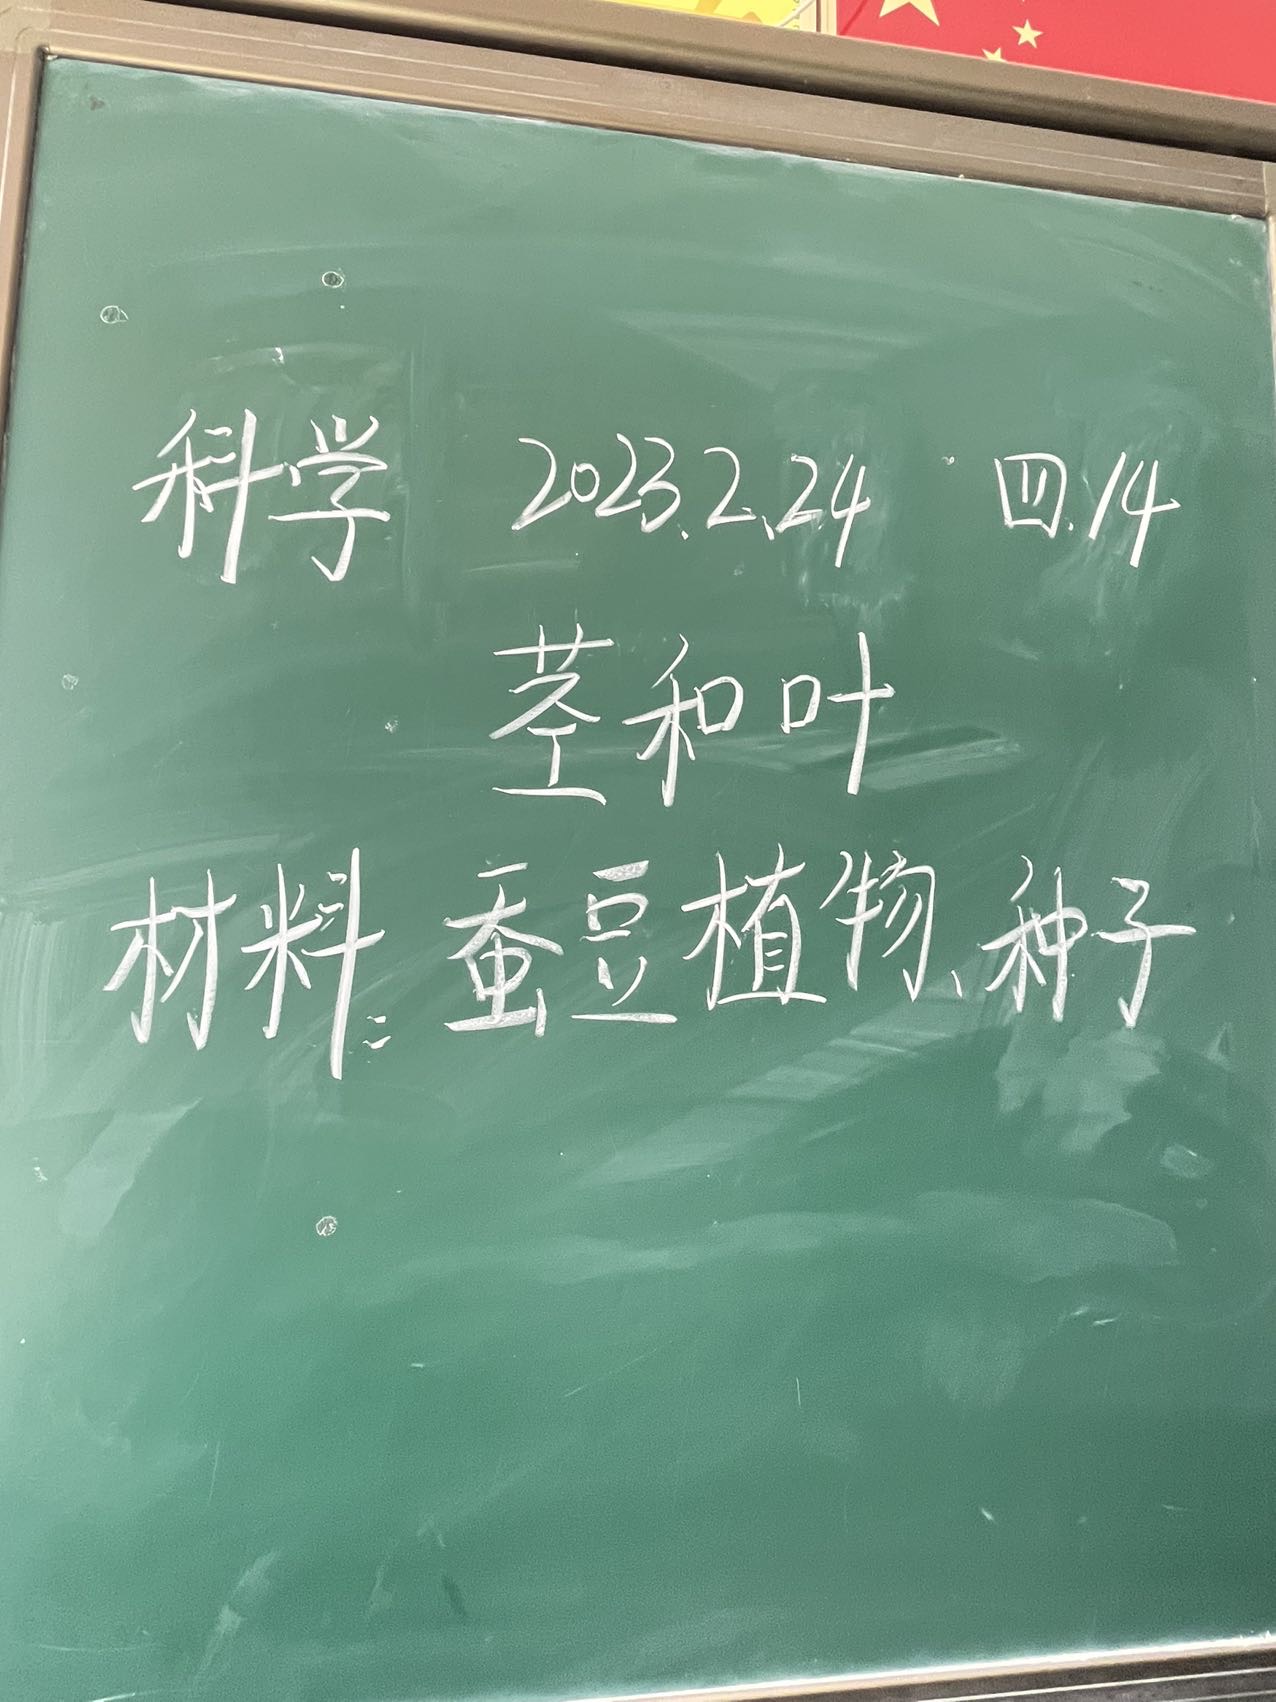 科学 2023.2.24 四.14
茎和叶
材料:蚕豆植物、种子